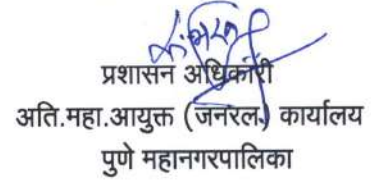 प्रशासन अधिकारी
अति.महा.आयुक्त (जनरल) कार्यालय
पुणे महानगरपालिका